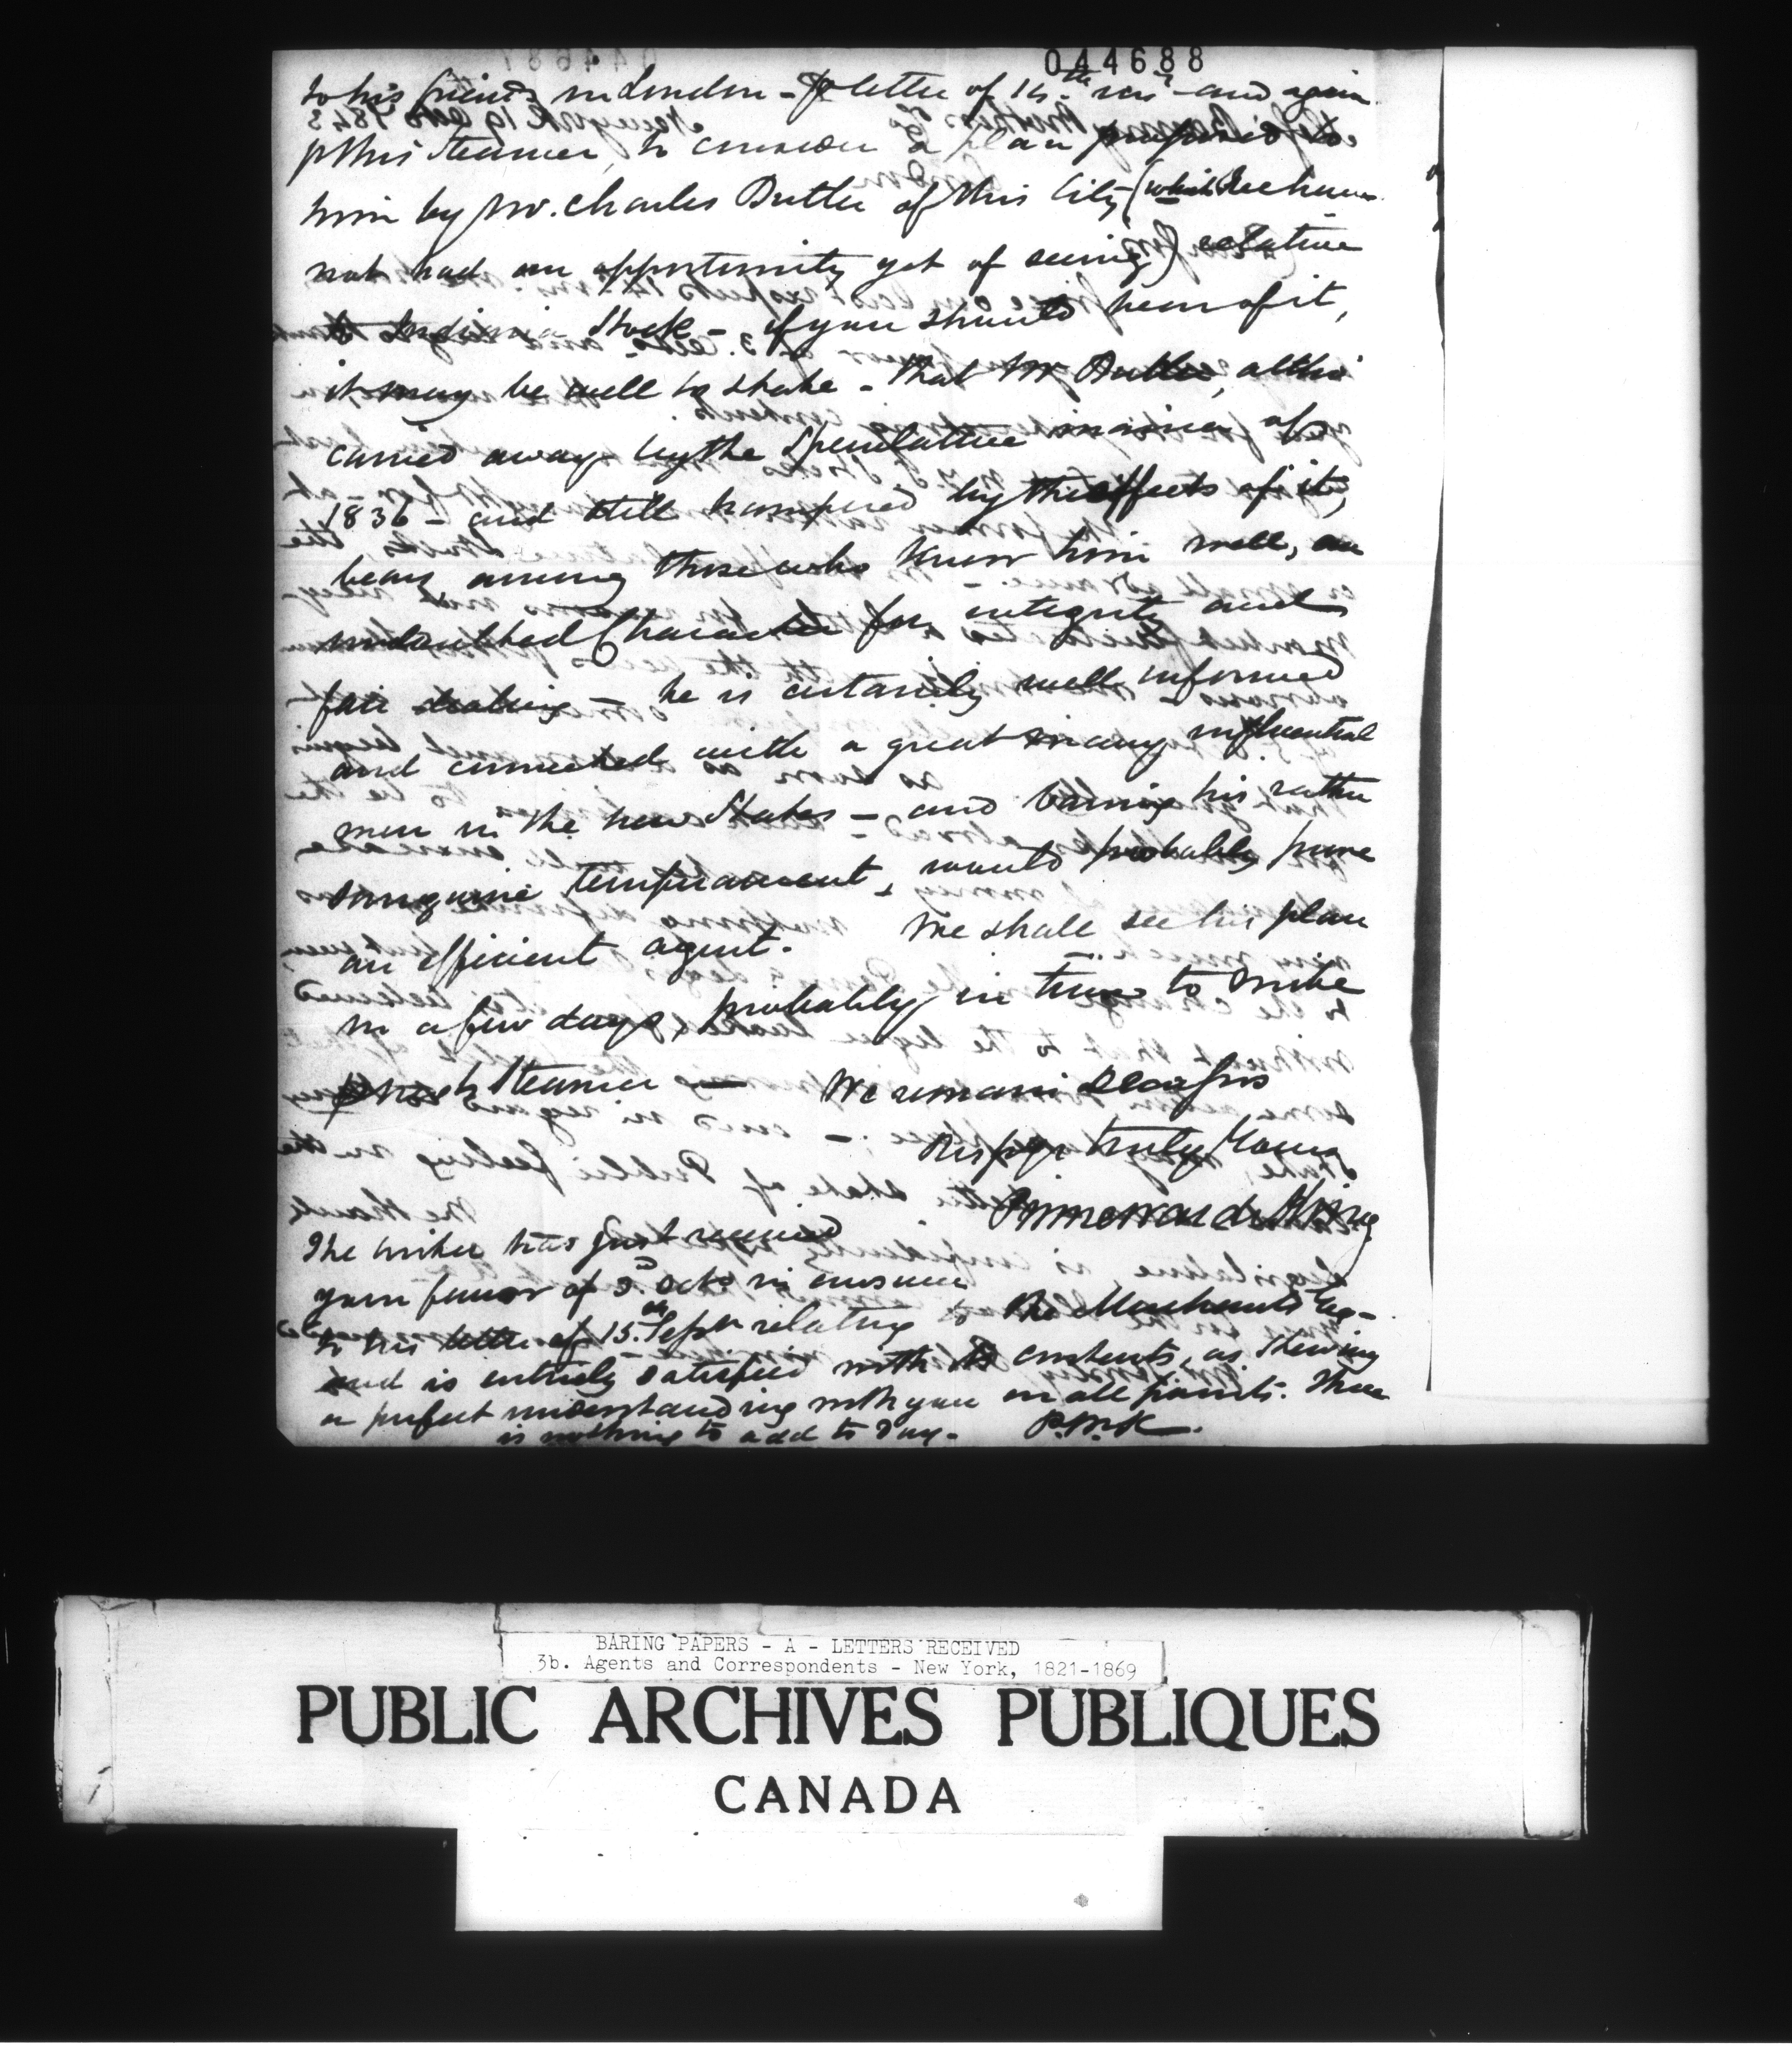 044688
to his friends in London - p letter of 14th ins - and again
p this Steamer, to consider a plan proposed to
him by Mr. Charles Butler of this City (which we have
not had an opportunity yet of seeing) relative
to Indiana Stock - if you should hear of it,
it may be well to state - that Mr Butler, altho'
carried away by the Speculative mania of
1836 - and still hampered by the effects of it,
bears among those who know him well, an
undoubted Character for integrity and
fair dealing - he is certainly well informed
and connected with a great many influential
men in the new States - and barring his rather
sanguine temperament, would probably prove
an efficient agent. We shall see his plan
in a few days, probably in time to write
p next Steamer — We remain Dear Sirs
Respy truly Yours
Prime Ward & King
The writer has just received
your favor of 3d Octo in answer
to his letter of 15th Septr relating to the Merchants
and is entirely satisfied with its contents, as shewing
a perfect understanding with you on all points. There
is nothing to add to day. P.W.K.
BARING PAPERS - A - LETTERS RECEIVED
3b. Agents and Correspondents - New York, 1821-1869
PUBLIC ARCHIVES PUBLIQUES
CANADA